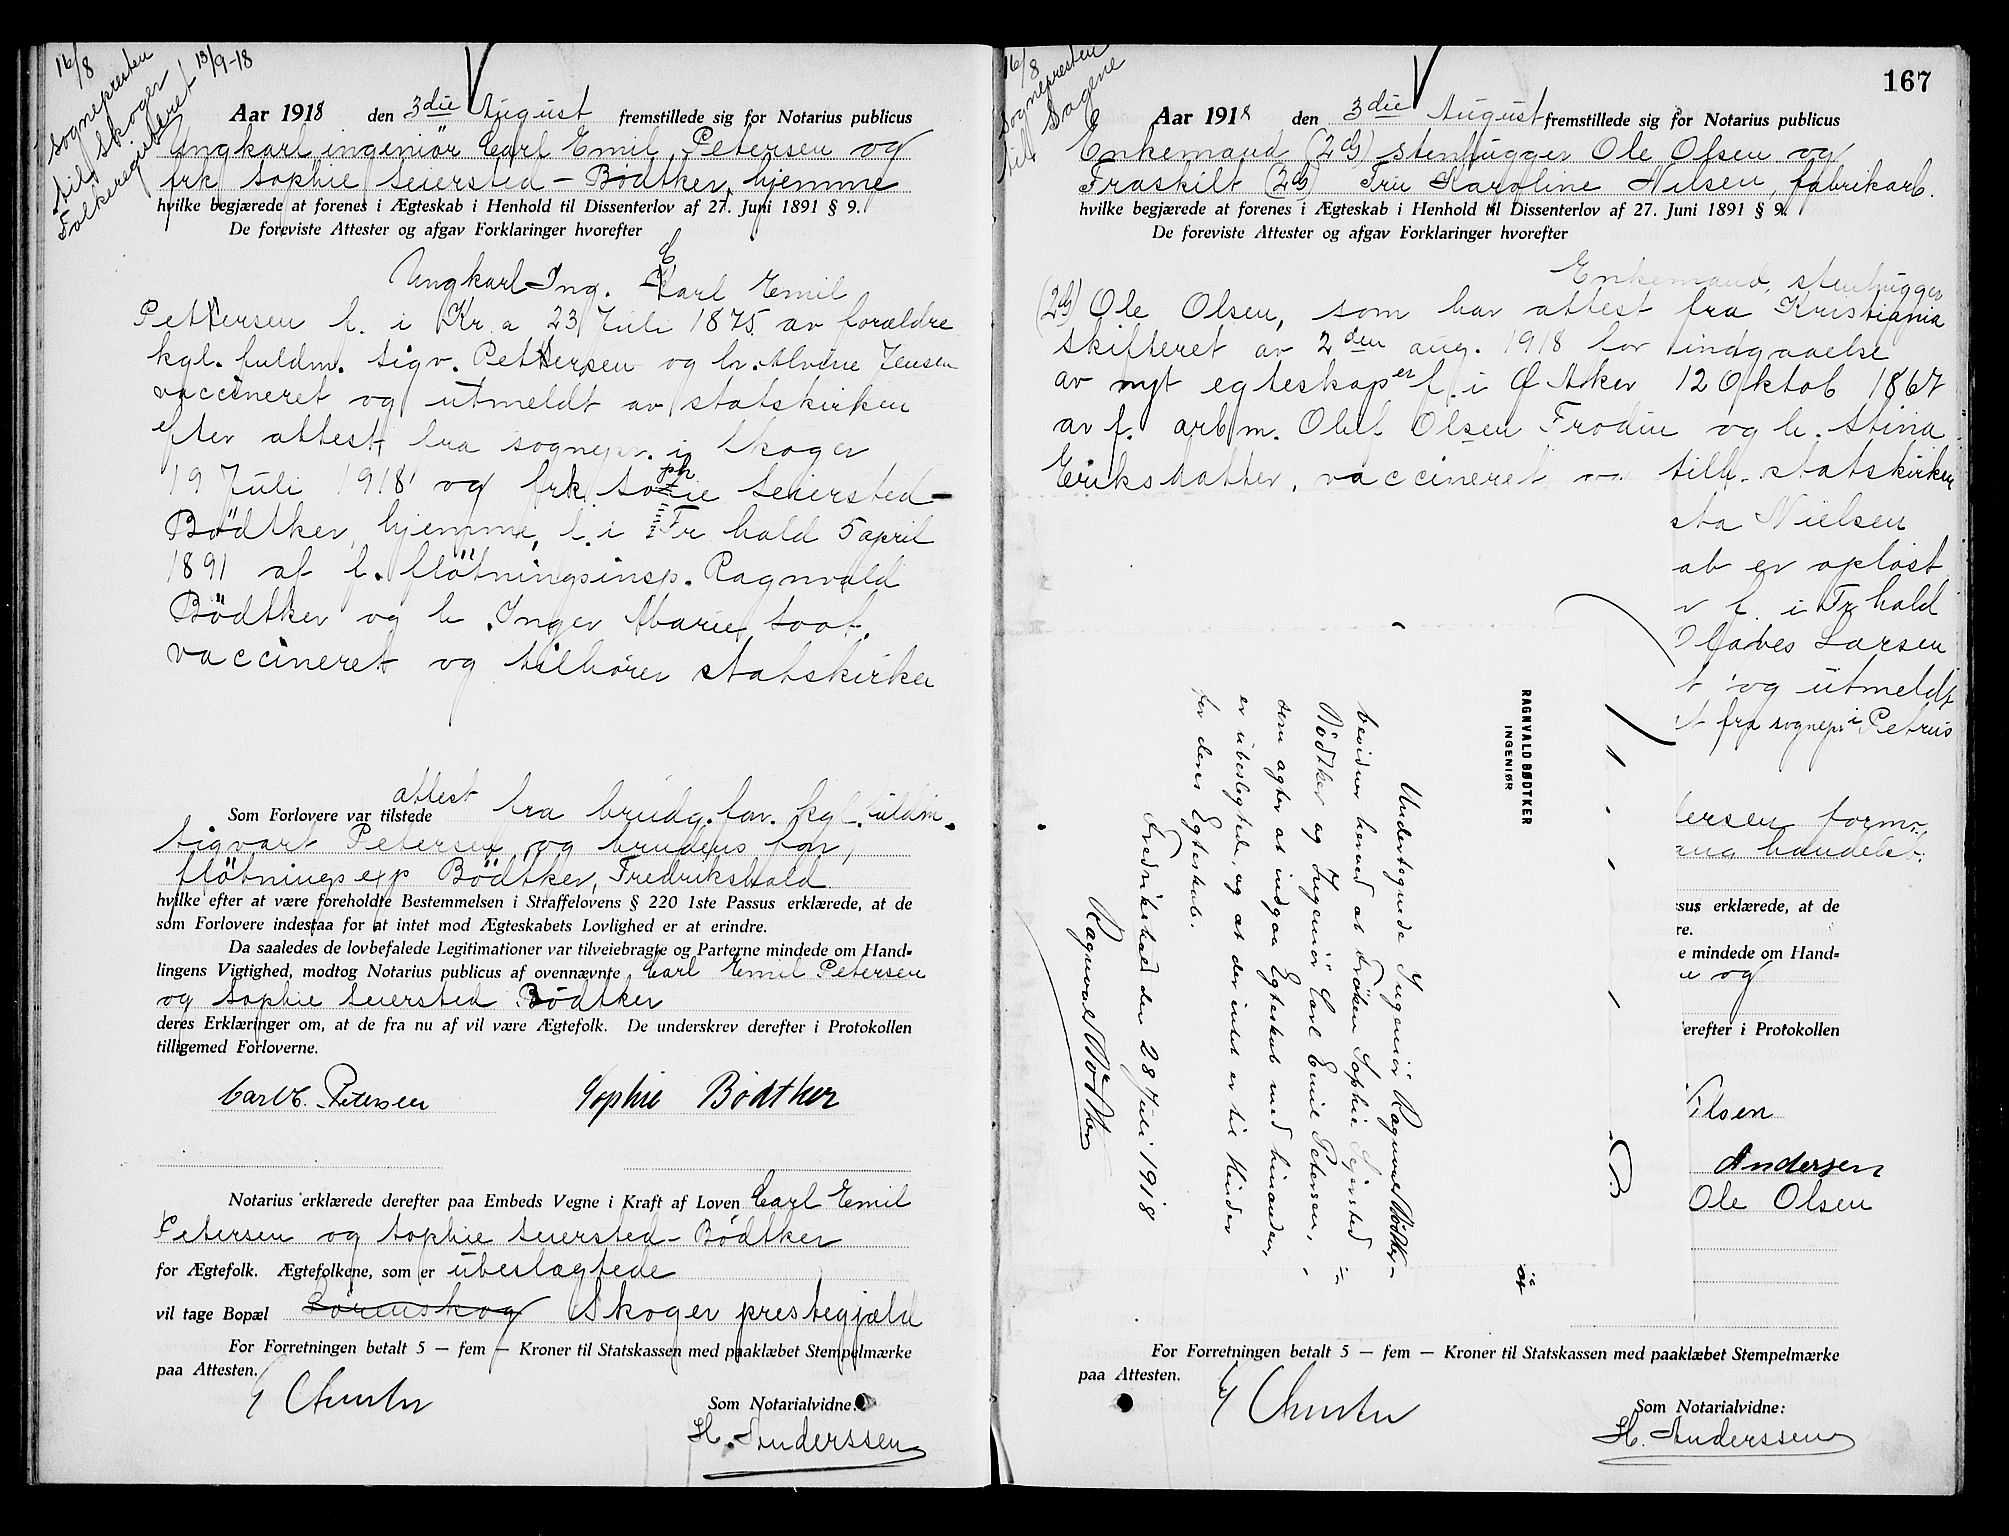 16/8
sognepresten
til Skoger
Folkeregisteret 13/9-18
Aar 1918 den 3die August fremstillede sig for Notarius publicus
Ungkarl ingeniör Carl Emil Petersen og
frk Sophie Seiersted-Bödtker, hjemme
hvilke begjærede at forenes i Ægteskab i Henhold til Dissenterlov af 27. Juni 1891 § 9.
De foreviste Attester og afgav Forklaringer hvorefter
Ungkarl Ing. Carl Emil
Pettersen f. i Kr.a 23 Juli 1875 av forældre
kgl. fuldm. Sigv. Pettersen og h. Alvine Jensen
vaccineret og utmeldt av statskirken
efter attest fra sognepr. i Skoger
19 Juli 1918 og frk. Sophie Seiersted-
Bödtker, hjemme, f. i Fr hald 5 april
1891 af f. flötningsinsp. Ragnvald
Bödtker og h. Inger Marie Soot.
vaccineret og tilhører statskirken
attest
Som Forlovere var tilstede fra brudg. far. kgl. fuldm.
Sigvart Petersen og brudens far,
flötningsexp Bödtker, Fredrikshald
hvilke efter at være foreholdte Bestemmelsen i Straffelovens § 220 1ste Passus erklærede, at de
som Forlovere indestaa for at intet mod Ægteskabets Lovlighed er at erindre.
Da saaledes de lovbefalede Legitimationer var tilveiebragte og Parterne mindede om Hand-
lingens Vigtighed, modtog Notarius publicus af ovennævnte Carl Emil Petersen
og Sophie Seiersted Bödtker
deres Erklæringer om, at de fra nu af vil være Ægtefolk. De underskrev derefter i Protokollen
tilligemed Forloverne.
Carl E. Petersen Sophie Bödtker
Notarius erklærede derefter paa Embeds Vegne i Kraft af Loven Carl Emil
Petersen og Sophie Seiersted-Bödtker
for Ægtefolk. Ægtefolkene, som er ubeslægtede
vil tage Bopæl Lörenskog Skoger prestegjæld
For Forretningen betalt 5 — fem — Kroner til Statskassen med paaklæbet Stempelmærke
paa Attesten.
Som Notarialvidne:
H. Anderssen
167
16/8
Sognepresten
til Sagene
Aar 1918 den 3die August fremstillede sig for Notarius publicus
Enkemand (2dg) stenhugger Ole Olsen og
Fraskilt (2dg) Fru Karoline Nilsen, fabrikarb.
hvilke begjærede at forenes i Ægteskab i Henhold til Dissenterlov af 27. Juni 1891 § 9.
De foreviste Attester og afgav Forklaringer hvorefter
Enkemand, stenhugger
(2dg) Ole Olsen, som har attest fra Kristiania
skifteret av 2den aug. 1918 for indgaaelse
av nyt egteskap er f. i Ø Aker 12 Oktob 1867
av f. arbm. Oluf Olsen Frodin og h. Stina
Eriksdatter, vaccineret og tilh. statskirken
sta Nielsen
ab er opløst
f. i Fr hald
Larsen
t og utmeldt
t fra sognepr i Petrus
RAGNVALD BØDTKER
INGENIØR
Undertegnede Ingeniör Ragnvald Bödtker
bevidner herved at Fröken Sophie Sejersted
Bödtker og Ingeniör Carl Emil Petersen,
som agter at indgaa Egteskab med hinanden,
er ubeslegtede, og at der intet er til Hinder
for deres Egteskab.
Fredrikshald den 28 Juli 1918
Ragnvald Bödtker
dersen form.
ang handelsb.
ssus erklærede, at de
re.
e mindede om Hand-
og
derefter i Protokollen
ilsen
Andersen
Ole Olsen
For Forretningen betalt 5 — fem — Kroner til Statskassen med paaklæbet Stempelmærke
paa Attesten.
Som Notarialvidne:
H. Anderssen